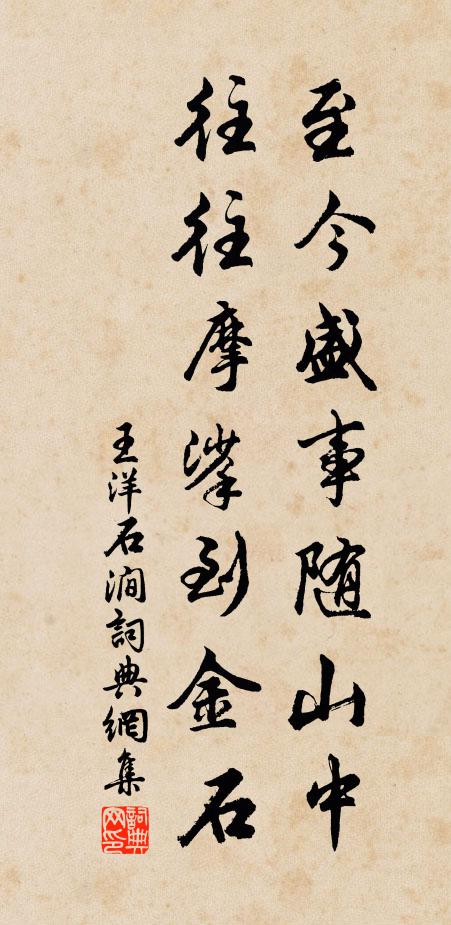 至今盛事随山中
往往摩挲到金石
王洋石涧詞典網集
詞典
网印